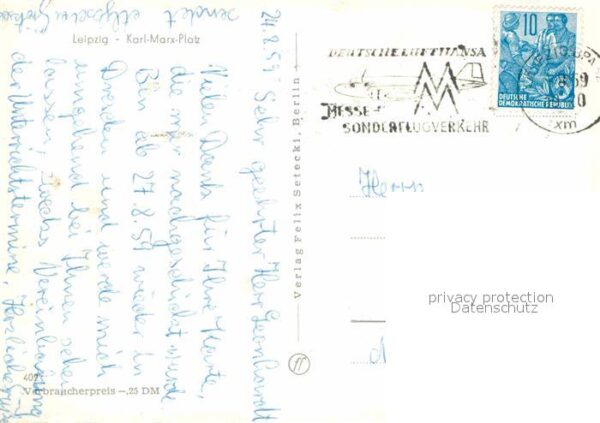 Leipzig - Karl-Marx-Platz
24.8.59
Sehr geehrter Herr Leonhardt
Vielen Dank für Ihre Karte,
die mir nachgeschickt wurde
Bin ab 27.8.59 wieder in
Dresden und werde mich
umgehend bei Ihnen sehen
lassen, zwecks Vereinbarung
der Unterrichtstermine. Herzliche Grüße
sendet
402
Verbraucherpreis -,25 DM
Verlag Felix Setecki, Berlin
ff
DEUTSCHE LUFTHANSA
MM
MESSE-
SONDERFLUGVERKEHR
10
DEUTSCHE
DEMOKRATISCHE REPUBLIK
59
0
xm
Herrn
privacy protection
Datenschutz
d